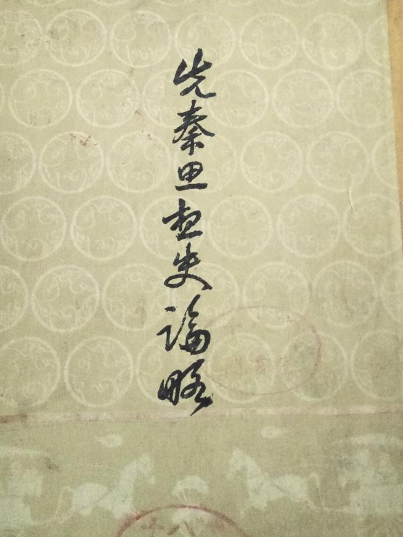 先秦思想史論略